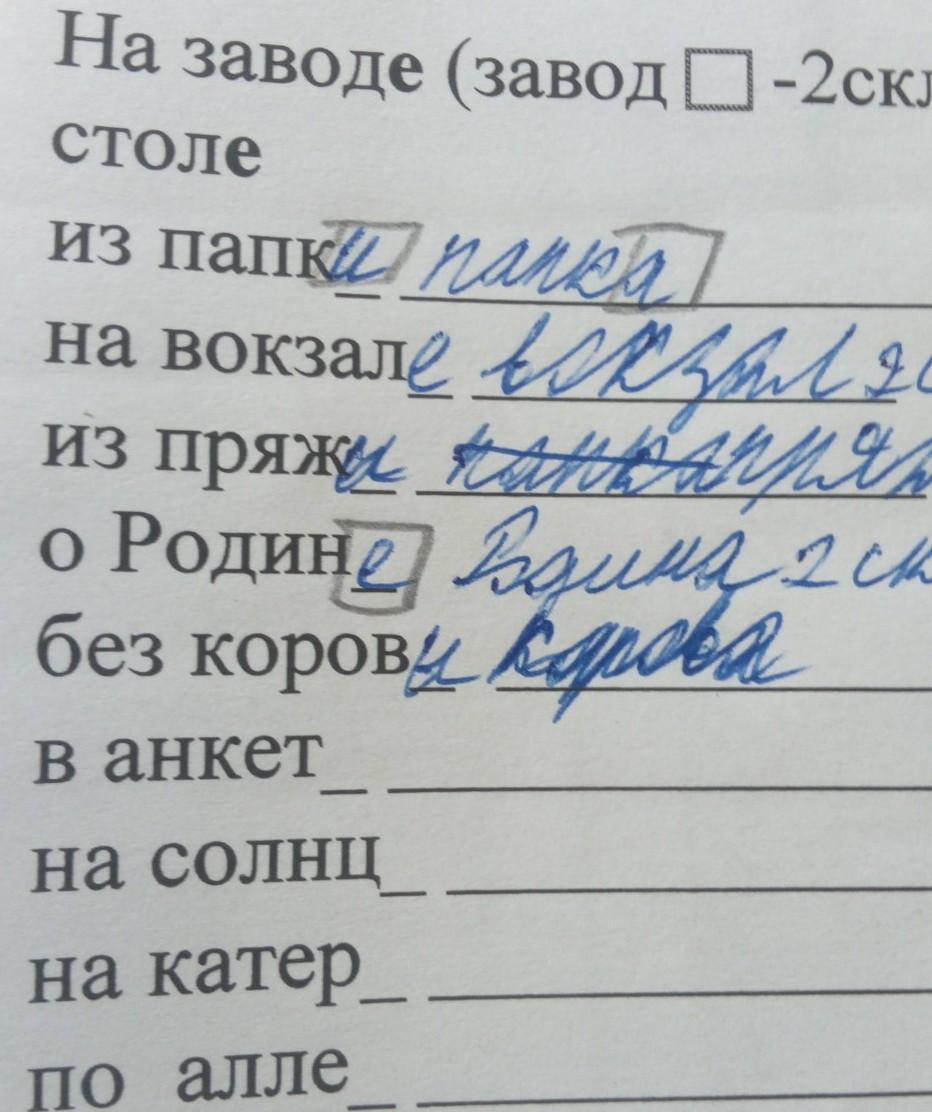 На заводе (завод □ -2скл
столе
из папки папка
на вокзале вокзал 2с
из пряжи папка пряж
о Родине Родина 2 ск
без корови корова
в анкет_
на солнц_
на катер_
по алле_